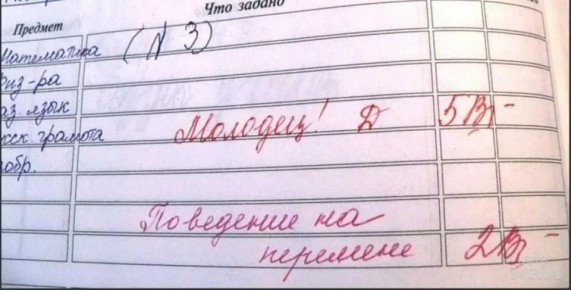 Предмет Что задано
Математика (N 3)
Физ-ра
Каз. язык
грамота Молодец! Д 5
Поведение на
перемене 2